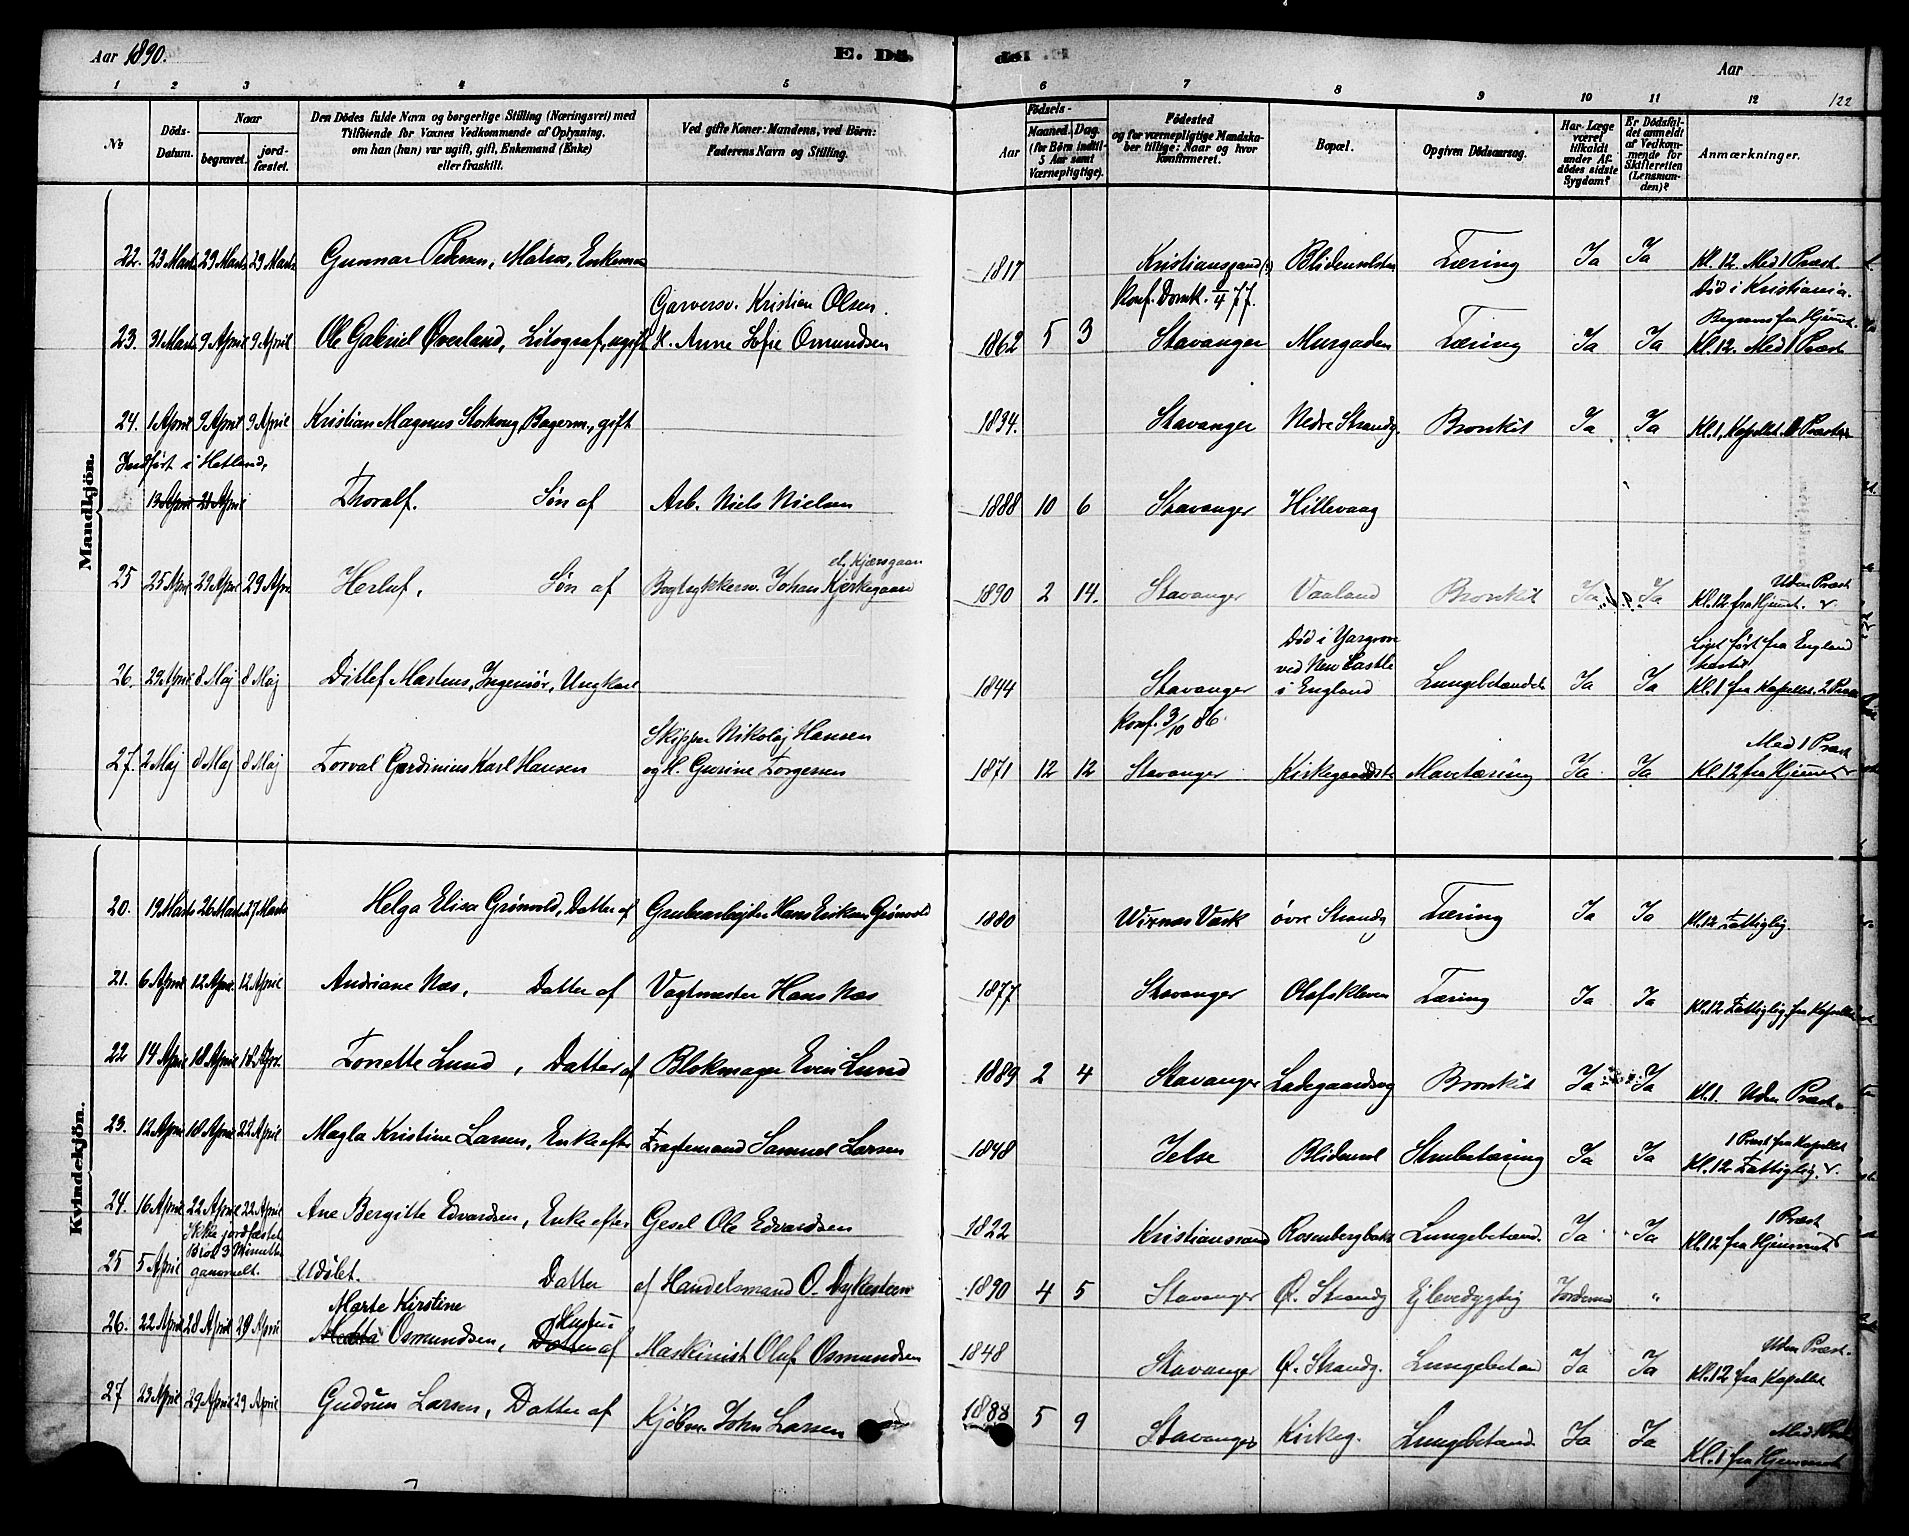 Aar 1890. E. Dö de. Aar
122
1 2 3 4 5 6 7 8 9 10 11 12
No
Döds-Datum.
Naar
begravet.
jord-fæstet.
Den Dödes fulde Navn og borgerlige Stilling (Næringsvei) med
Tilföiende for Voxnes Vedkommende af Oplysning,
om han (hun) var ugift, gift, Enkemand (Enke)
eller fraskilt.
Ved gifte Koner: Mandens, ved Börn:
Faderens Navn og Stilling.
Födsels-
Aar
Maaned. Dag.
(for Börn indtil
5 Aar samt
Værnepligtige).
Födested
og for værnepligtige Mandska-
ber tillige: Naar og hvor
Konfirmeret.
Bopæl.
Opgiven Dödsaarsag.
Har Læge
været
tilkaldt
under Af-
dödes sidste
Sygdom?
Er Dödsfal-
det anmeldt
af Vedkom-
mende for
Skifteretten
(Lensman-
den)?
Anmærkninger.
Mandkjön.
22. 23 Marts 29 Marts 29 Marts Gunnar Pedersen, Matros, Enkemand 1817 Kristianssand Blidensolstr Tæring Ja Ja Kl. 12. Med 1 Præst.
Garversv. Kristian Olsen. Konf. Domk. 8/4 77. Død i Kristiania.
Begraves fra Hjemmet.
23. 31 Marts 9 April 9 April Ole Gabriel Øverland, Litograf, ugift H. Anne Sofie Omundsen 1862 5 3 Stavanger Murgaden Tæring Ja Ja Kl. 12. Med 1 Præst
24. 1 April 9 April 9 April Kristian Magnus Storkong, Bagerm., gift 1834. Stavanger Nedre Strandg. Bronkit Ja Ja Kl. 1, Kapellet.
Indført i Hetland,
13 April 21 April Thoralf. Søn af Arb. Niels Nielsen 1888 10 6 Stavanger Hillevaag
el. Kjærsgaan
Uden Præst
25 25 April 29 April 29 April Herluf, Søn af Bogtrykkersv. Johans Kjerkegaan 1890 2 14. Stavanger Vaaland Bronkit Ja Ja Kl. 12 fra Hjemmet.
Død i Yargrove Liget ført fra England
ved New Castle hertil
26. 29 April 8 Maj 8 Maj Ditlef Martens, Ingeniør, Ungkarl 1844 Stavanger i England Lungebetændels Ja Ja Kl. 1 fra Kapellet. 2 Præst
Skipper Nikolaj Hansen Konf. 3/10 86. Med 1 Præst
27. 2 Maj 8 Maj 8 Maj Torval Gerdinius Karl Hansen og H. Gurine Torgersen 1871 12 12 Stavanger Kirkegaardsbk Mavetæring Ja Ja Kl. 12 fra Hjemmet
Kvindekjön.
20. 19 Marts 26 Marts 27 Marts Helga Elisa Grönvold, Datter af Grubearbejder Hans Eriksen Grönvold 1880 Vixnæs Værk øvre Strandg Tæring Ja Ja Kl. 12 Fattiglig.
21. 6 April 12 April 12 April Andriane Næs, Datter af Vagtmester Hans Næs 1877 Stavanger Olafskleven Tæring Ja Ja Kl. 12 Fattiglig fra Kapellet
22 14 April 18 April 18 Apr. Tonette Lund, Datter af Blokmager Even Lund 1889 2 4 Stavanger Ladegaardsvg Bronkit Ja Ja Kl. 1. Uden Præst.
1 Præst fra Kapellet
23. 12 April 18 April 22 April Magla Kristine Larsen, Enke efter Fragtemand Samuel Larsen 1848 Jelse Blidensol Strubetæring Ja Ja Kl. 12. Fattiglig.
1 Præst
24. 16 April 22 April 22 April Ane Bergitte Edvardsen, Enke efter Gesel Ole Edvardsen 1822 Kristianssand Rosenbergbakk Lungebetænd. Ja Ja Kl. 12 fra Hjemmet
Ikke jordfæstet
Blot 3 Minutter
25 5 April gammelt. Udøbt. Datter af Handelsmand O. Dykesteen 1890 4 5 Stavanger Ø. Strandg Ejlevedygtig Jordemod "
Marte Kirstine Hustru Uden Præst.
26. 22 April 28 April 29 April Osmundsen, Datter af Maskinist Oluf Osmundsen 1848 Stavanger Ø. Strandg. Lungebetænd Ja Ja Kl. 12 fra Kapellet
27 23 April 29 April 29 April Gudrun Larsen, Datter af Kjøbm. John Larsen 1888 5 9 Stavanger Kirkeg. Lungebetænd. Ja Ja Kl. 1 fra Hjemmet